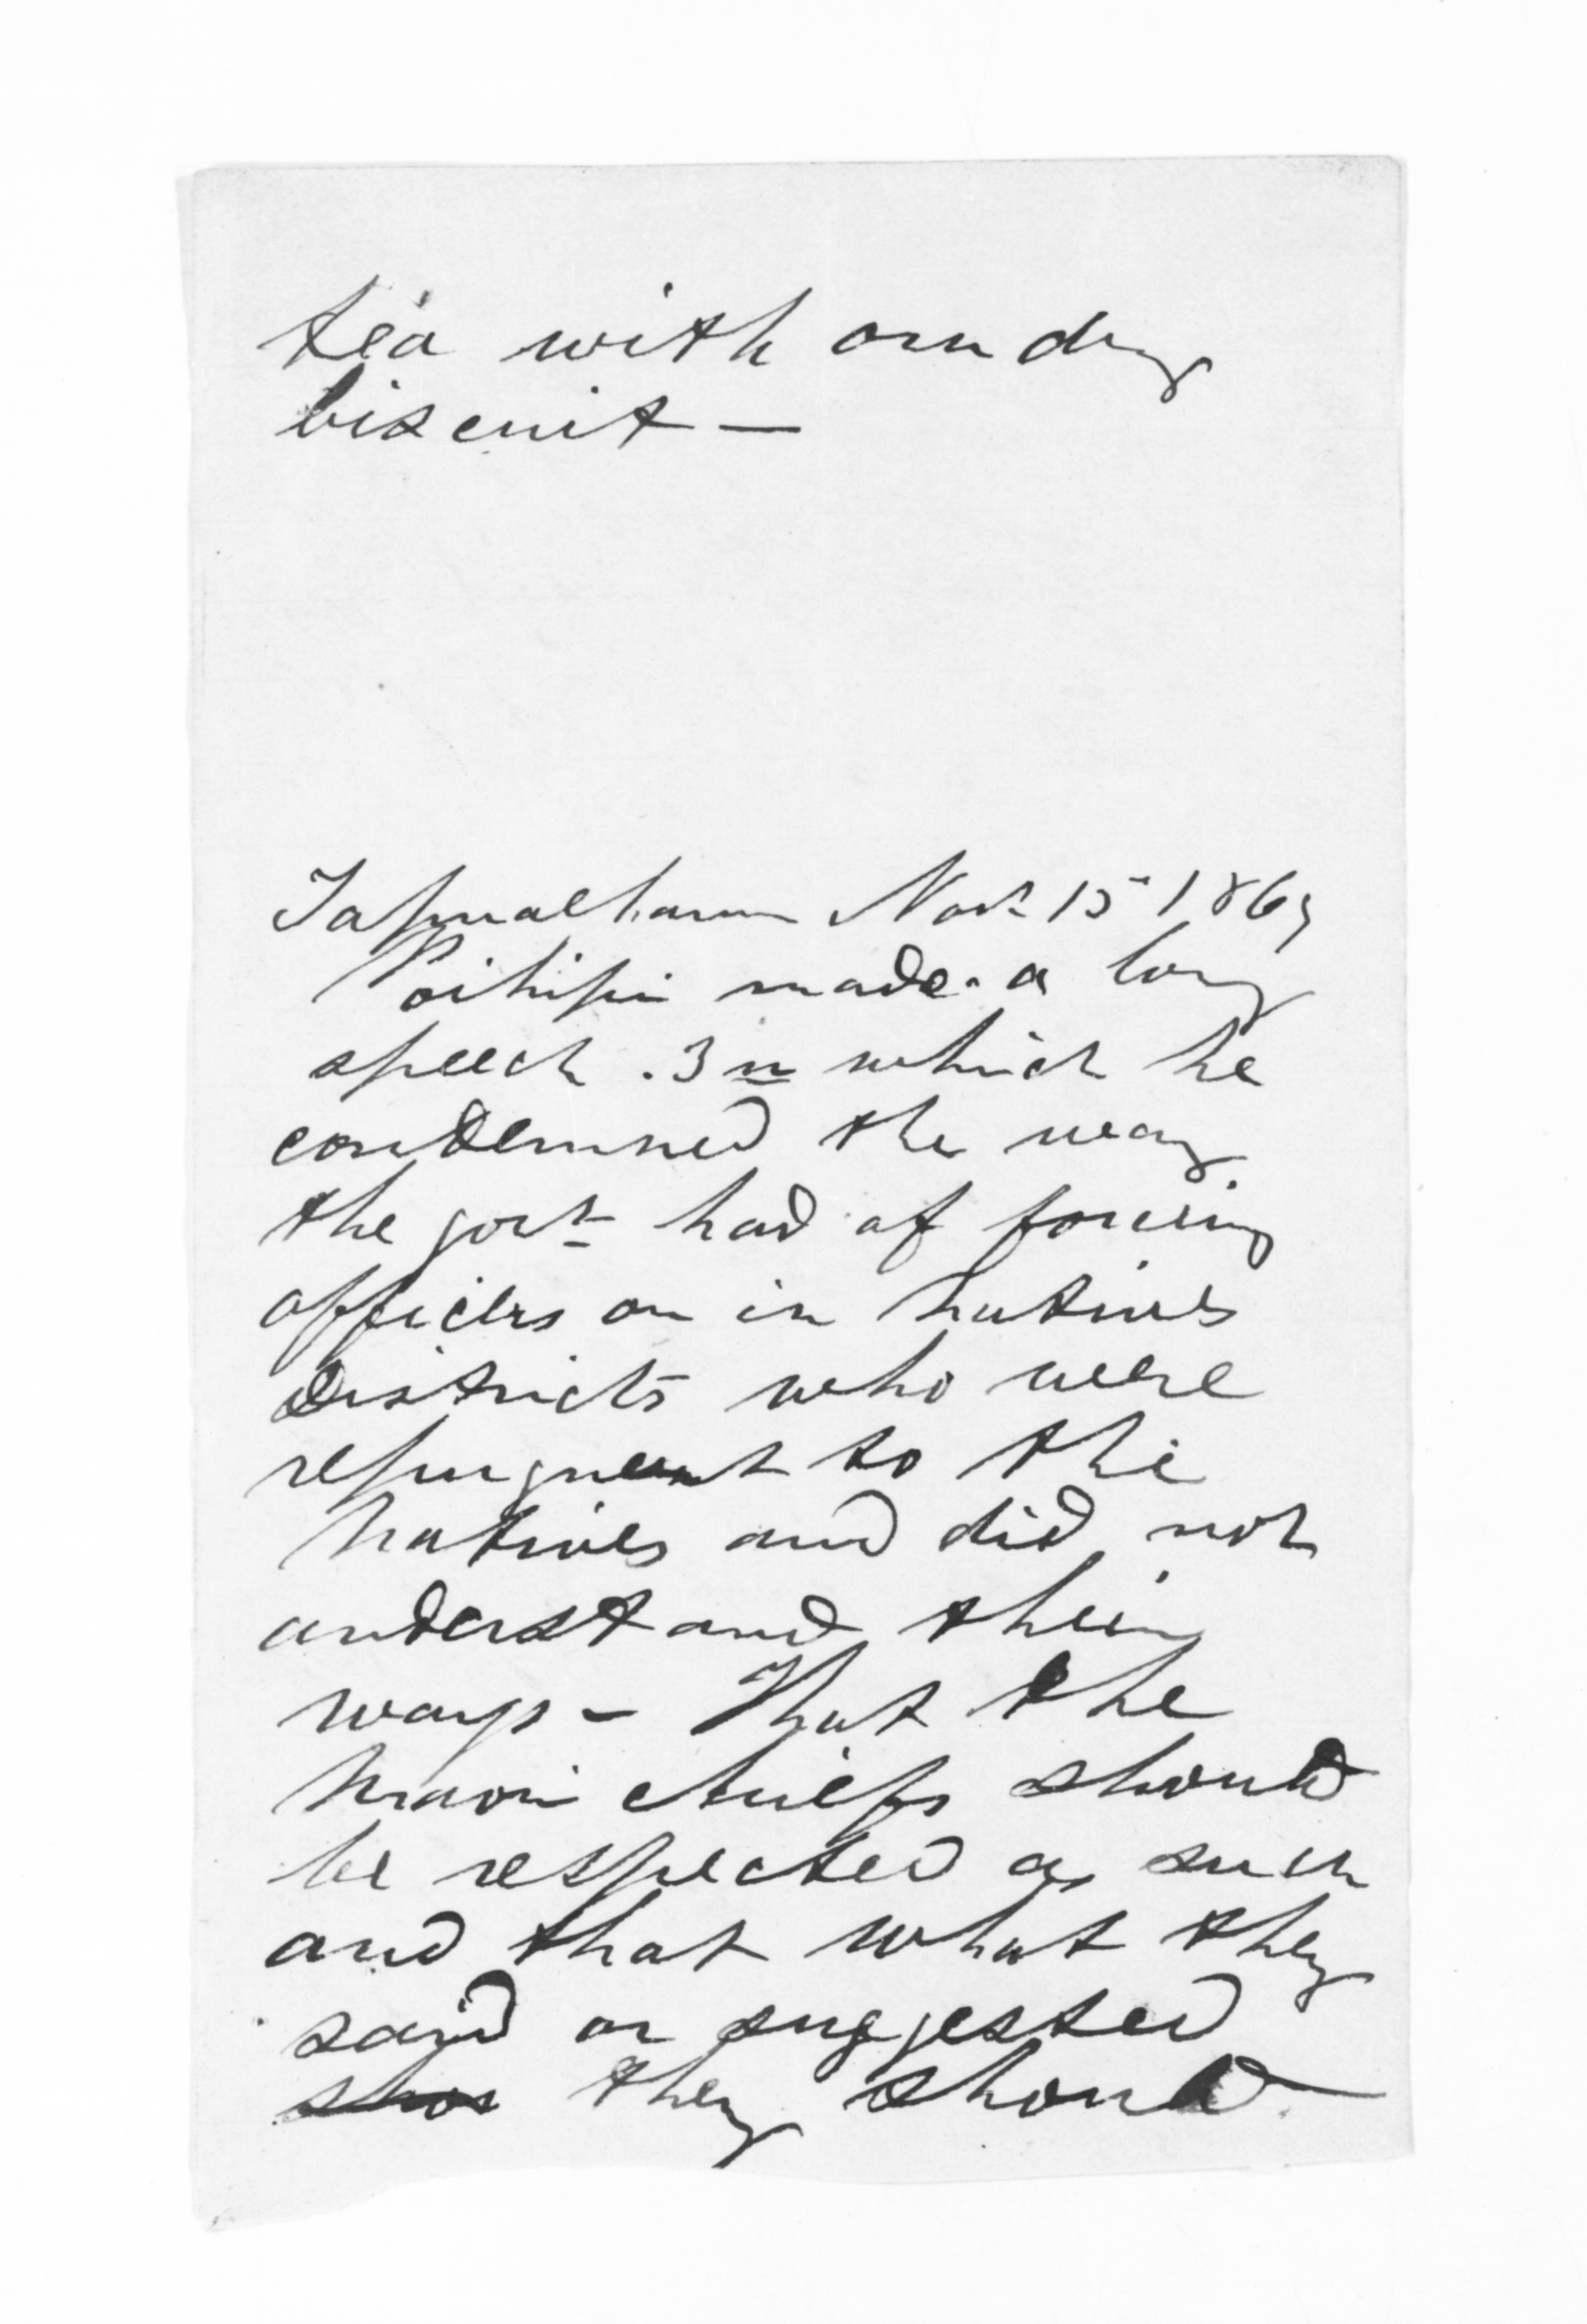 tea with our dry
biscuit —
Tapuaeharuru Nov 15 1869
Poihipi made a long
speech. In which he
condemned the way
the govt had of forcing
officers on in natives
districts who were
repugnant to the
natives and did not
understand their
ways – That the
Maori chiefs should
be respected as such
and that what they
said or suggested
they should